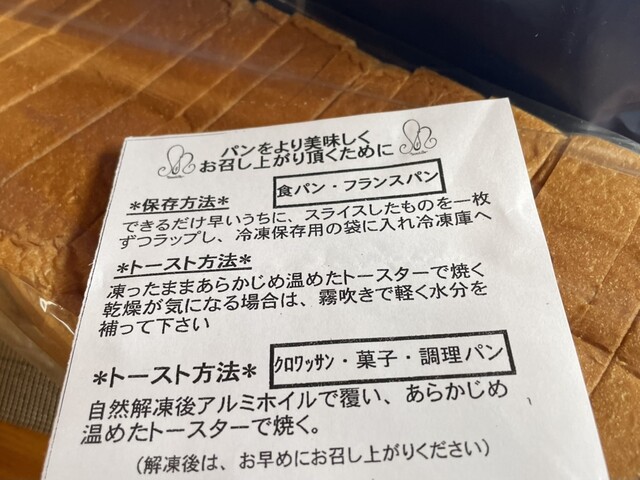 パンをより美味しく
お召し上がり頂くために
食パン・フランスパン
*保存方法*
できるだけ早いうちに、スライスしたものを一枚
ずつラップし、冷凍保存用の袋に入れ冷凍庫へ
*トースト方法*
凍ったままあらかじめ温めたトースターで焼く
乾燥が気になる場合は、霧吹きで軽く水分を
補って下さい
クロワッサン・菓子・調理パン
*トースト方法*
自然解凍後アルミホイルで覆い、あらかじめ
温めたトースターで焼く。
（解凍後は、お早めにお召し上がりください）